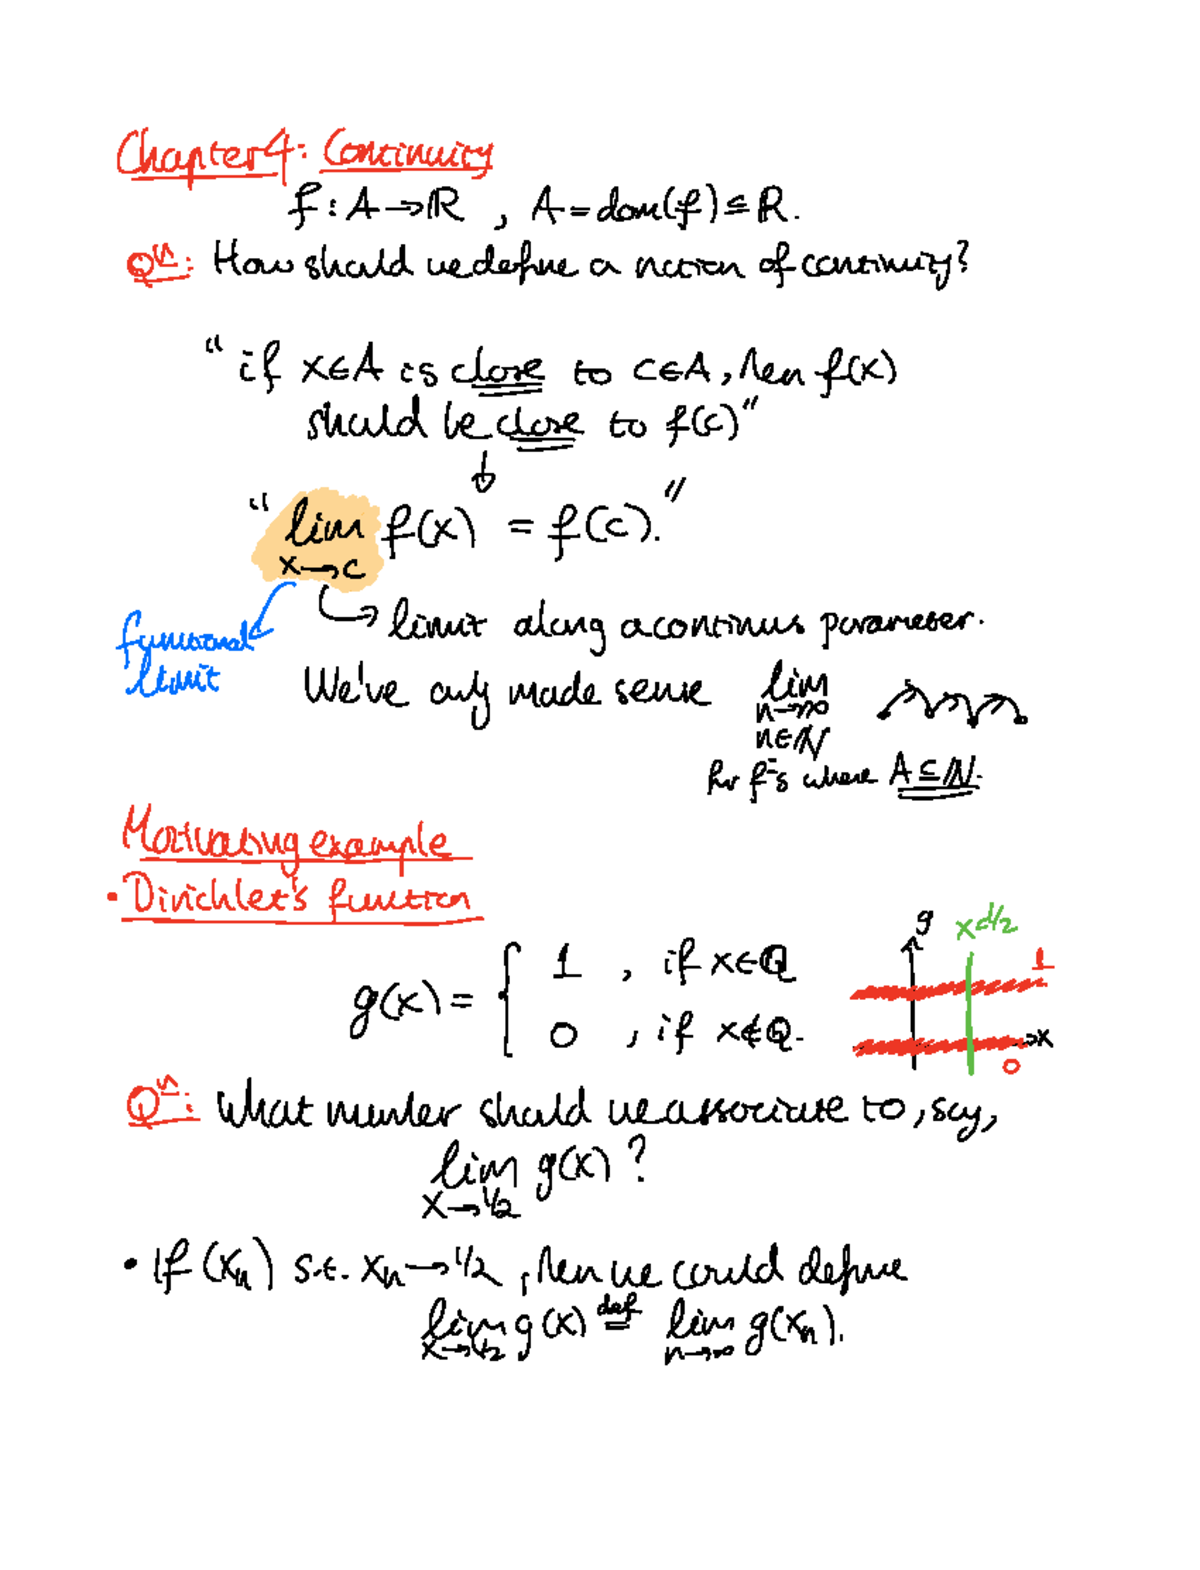 Chapter 4: Continuity
f: A → ℝ , A = dom(f) ⊆ ℝ.
Qⁿ: How should we define a notion of continuity?
"if x∈A is close to c∈A, then f(x)
should be close to f(c)"
↓
"lim f(x) = f(c)."
x→c
functional
limit
↪ limit along a continus parameter.
We've only made sense lim
n→∞
n∈ℕ
for fⁿs where A⊆ℕ.
Motivating example
• Dirichlet's function
g(x) = { 1 , if x∈ℚ
0 , if x∉ℚ.
g
x=1/2
1
x
0
Qⁿ: What number should we associate to, say,
lim g(x) ?
x→1/2
• If (xₙ) s.t. xₙ→1/2, then we could define
lim g(x) def= lim g(xₙ).
x→1/2 n→∞